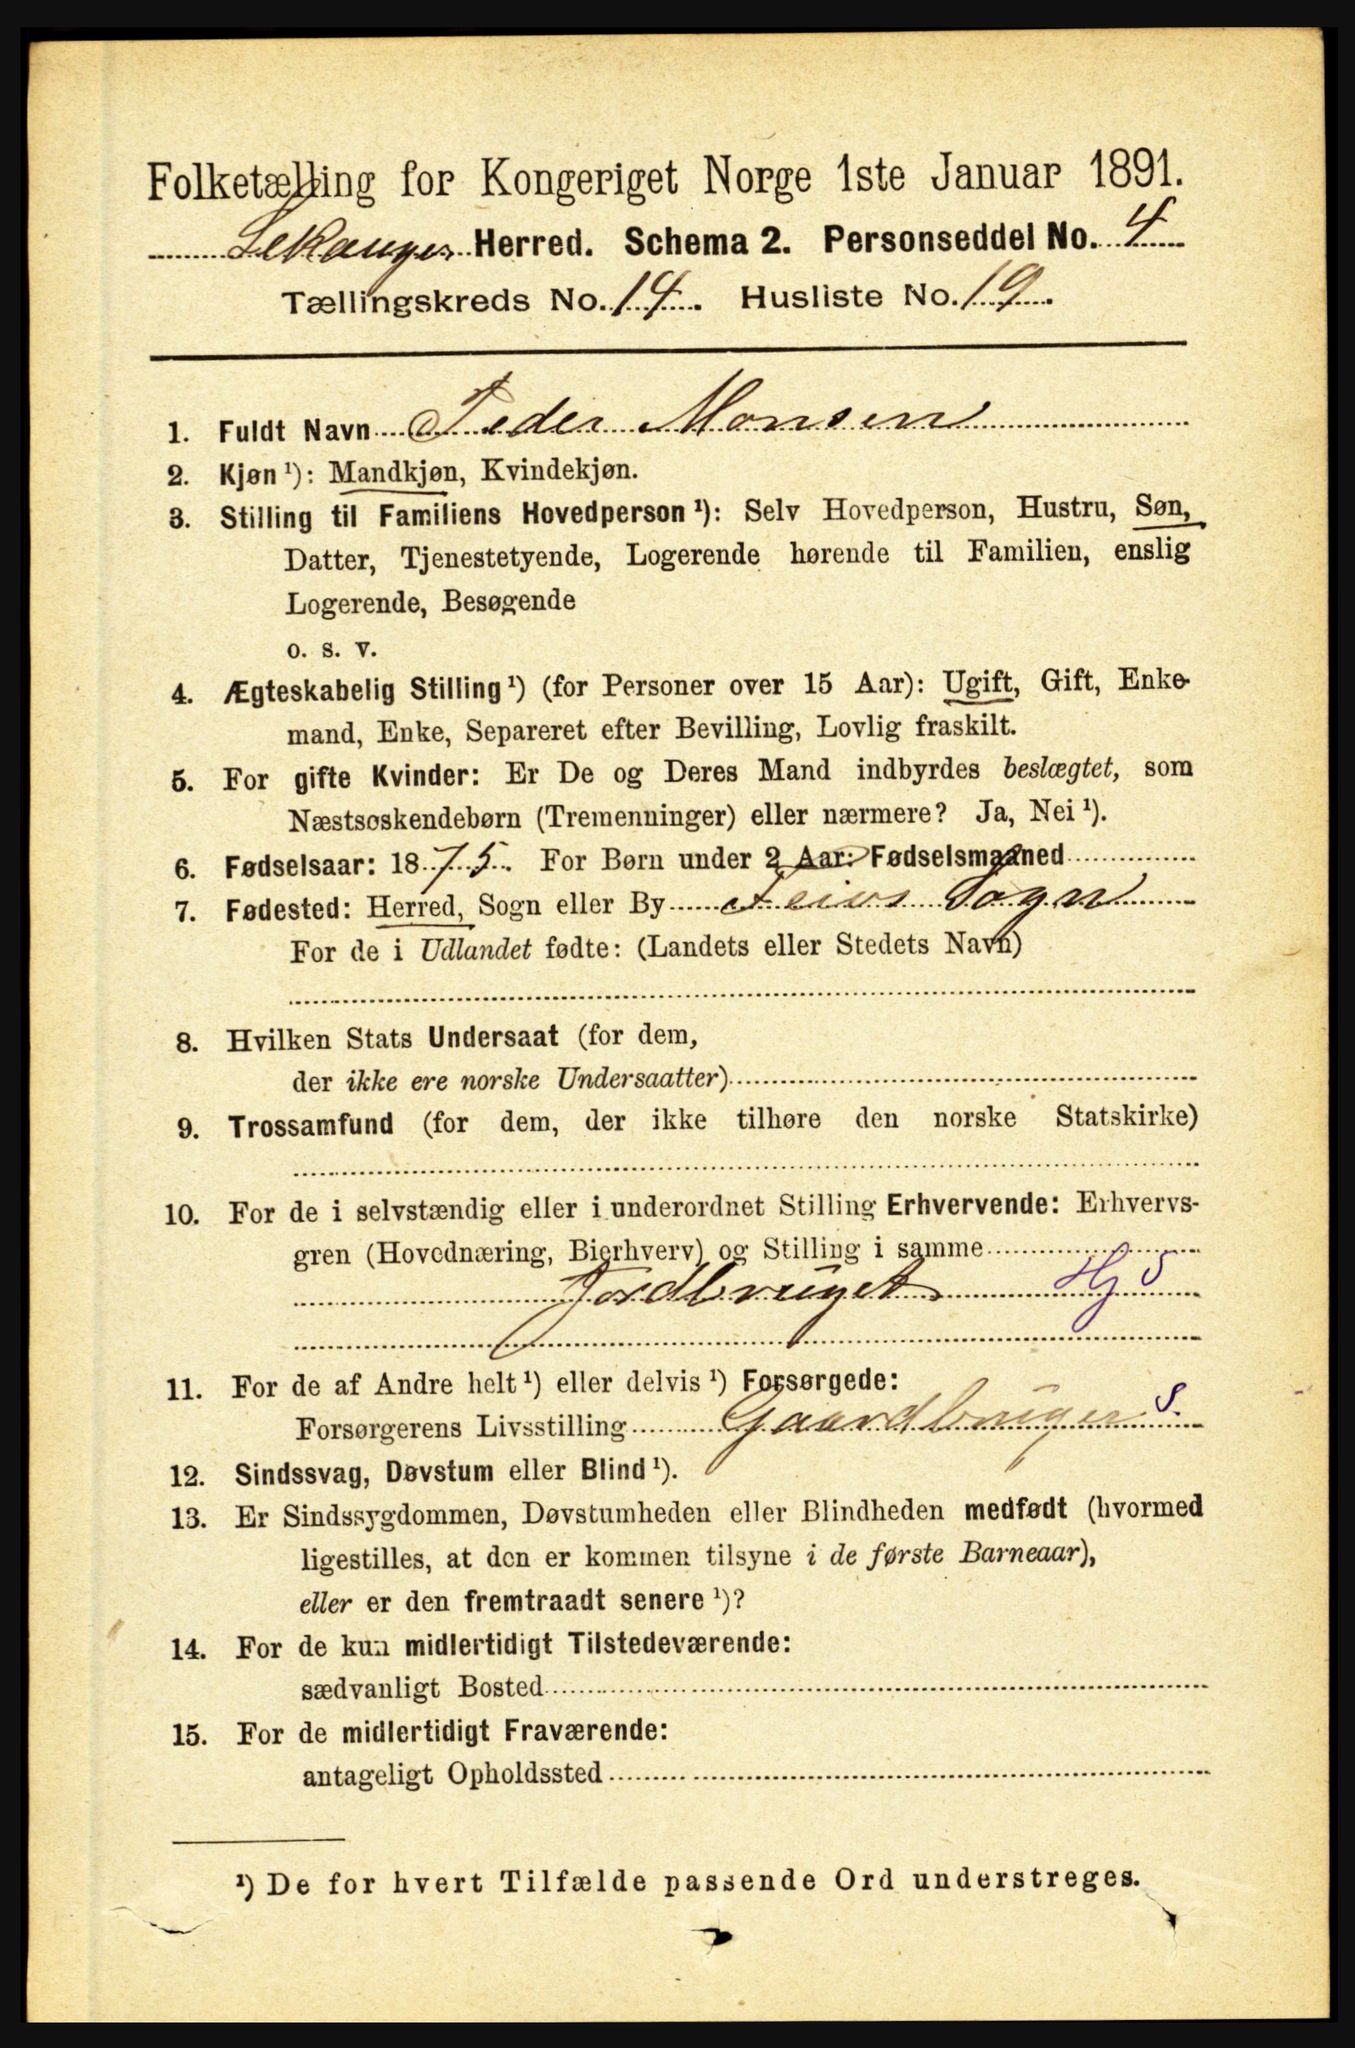 Folketælling for Kongeriget Norge 1ste Januar 1891.
Lekanger Herred. Schema 2. Personseddel No. 4
Tællingskreds No. 14. Husliste No. 19.
1. Fuldt Navn Peder Monsen
2. Kjøn ¹): Mandkjøn, Kvindekjøn.
3. Stilling til Familiens Hovedperson ¹): Selv Hovedperson, Hustru, Søn,
Datter, Tjenestetyende, Logerende hørende til Familien, enslig
Logerende, Besøgende
o. s. v.
4. Ægteskabelig Stilling ¹) (for Personer over 15 Aar): Ugift, Gift, Enke-
mand, Enke, Separeret efter Bevilling, Lovlig fraskilt.
5. For gifte Kvinder: Er De og Deres Mand indbyrdes beslægtet, som
Næstsøskendebørn (Tremenninger) eller nærmere? Ja, Nei ¹).
6. Fødselsaar: 1875. For Børn under 2 Aar: Fødselsmaaned
7. Fødested: Herred, Sogn eller By Feios Sogn
For de i Udlandet fødte: (Landets eller Stedets Navn)
8. Hvilken Stats Undersaat (for dem,
der ikke ere norske Undersaatter)
9. Trossamfund (for dem, der ikke tilhøre den norske Statskirke)
10. For de i selvstændig eller i underordnet Stilling Erhvervende: Erhvervs-
gren (Hovednæring, Bierhverv) og Stilling i samme
Jordbruget Hj S
11. For de af Andre helt ¹) eller delvis ¹) Forsørgede:
Forsørgerens Livsstilling Gaardbruger S.
12. Sindssvag, Døvstum eller Blind ¹).
13. Er Sindssygdommen, Døvstumheden eller Blindheden medfødt (hvormed
ligestilles, at den er kommen tilsyne i de første Barneaar),
eller er den fremtraadt senere ¹)?
14. For de kun midlertidigt Tilstedeværende:
sædvanligt Bosted
15. For de midlertidigt Fraværende:
antageligt Opholdssted
¹) De for hvert Tilfælde passende Ord understreges.